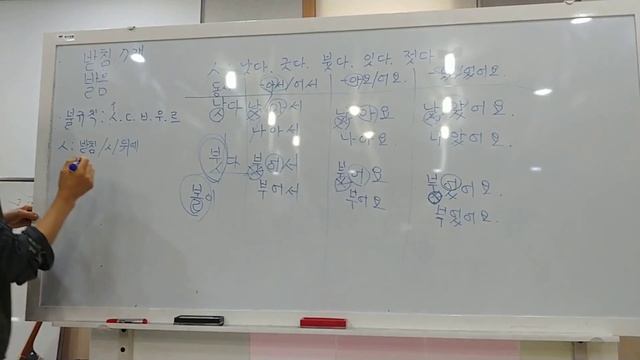 받침 7개
발음
ㅅ 낫다. 긋다. 붓다. 잇다. 젓다
-아서/어서 -아요/어요. -았/었어요.
불규칙: ㅅ. ㄷ. ㅂ. 우. 르
낫다 낫아서 낫아요 낫았어요.
나아서 나아요 나았어요.
ㅅ: 받침/ㅅ/뒤에
붓다 붓어서 붓어요 붓었어요.
붇이 부어서 부어요 부었어요.